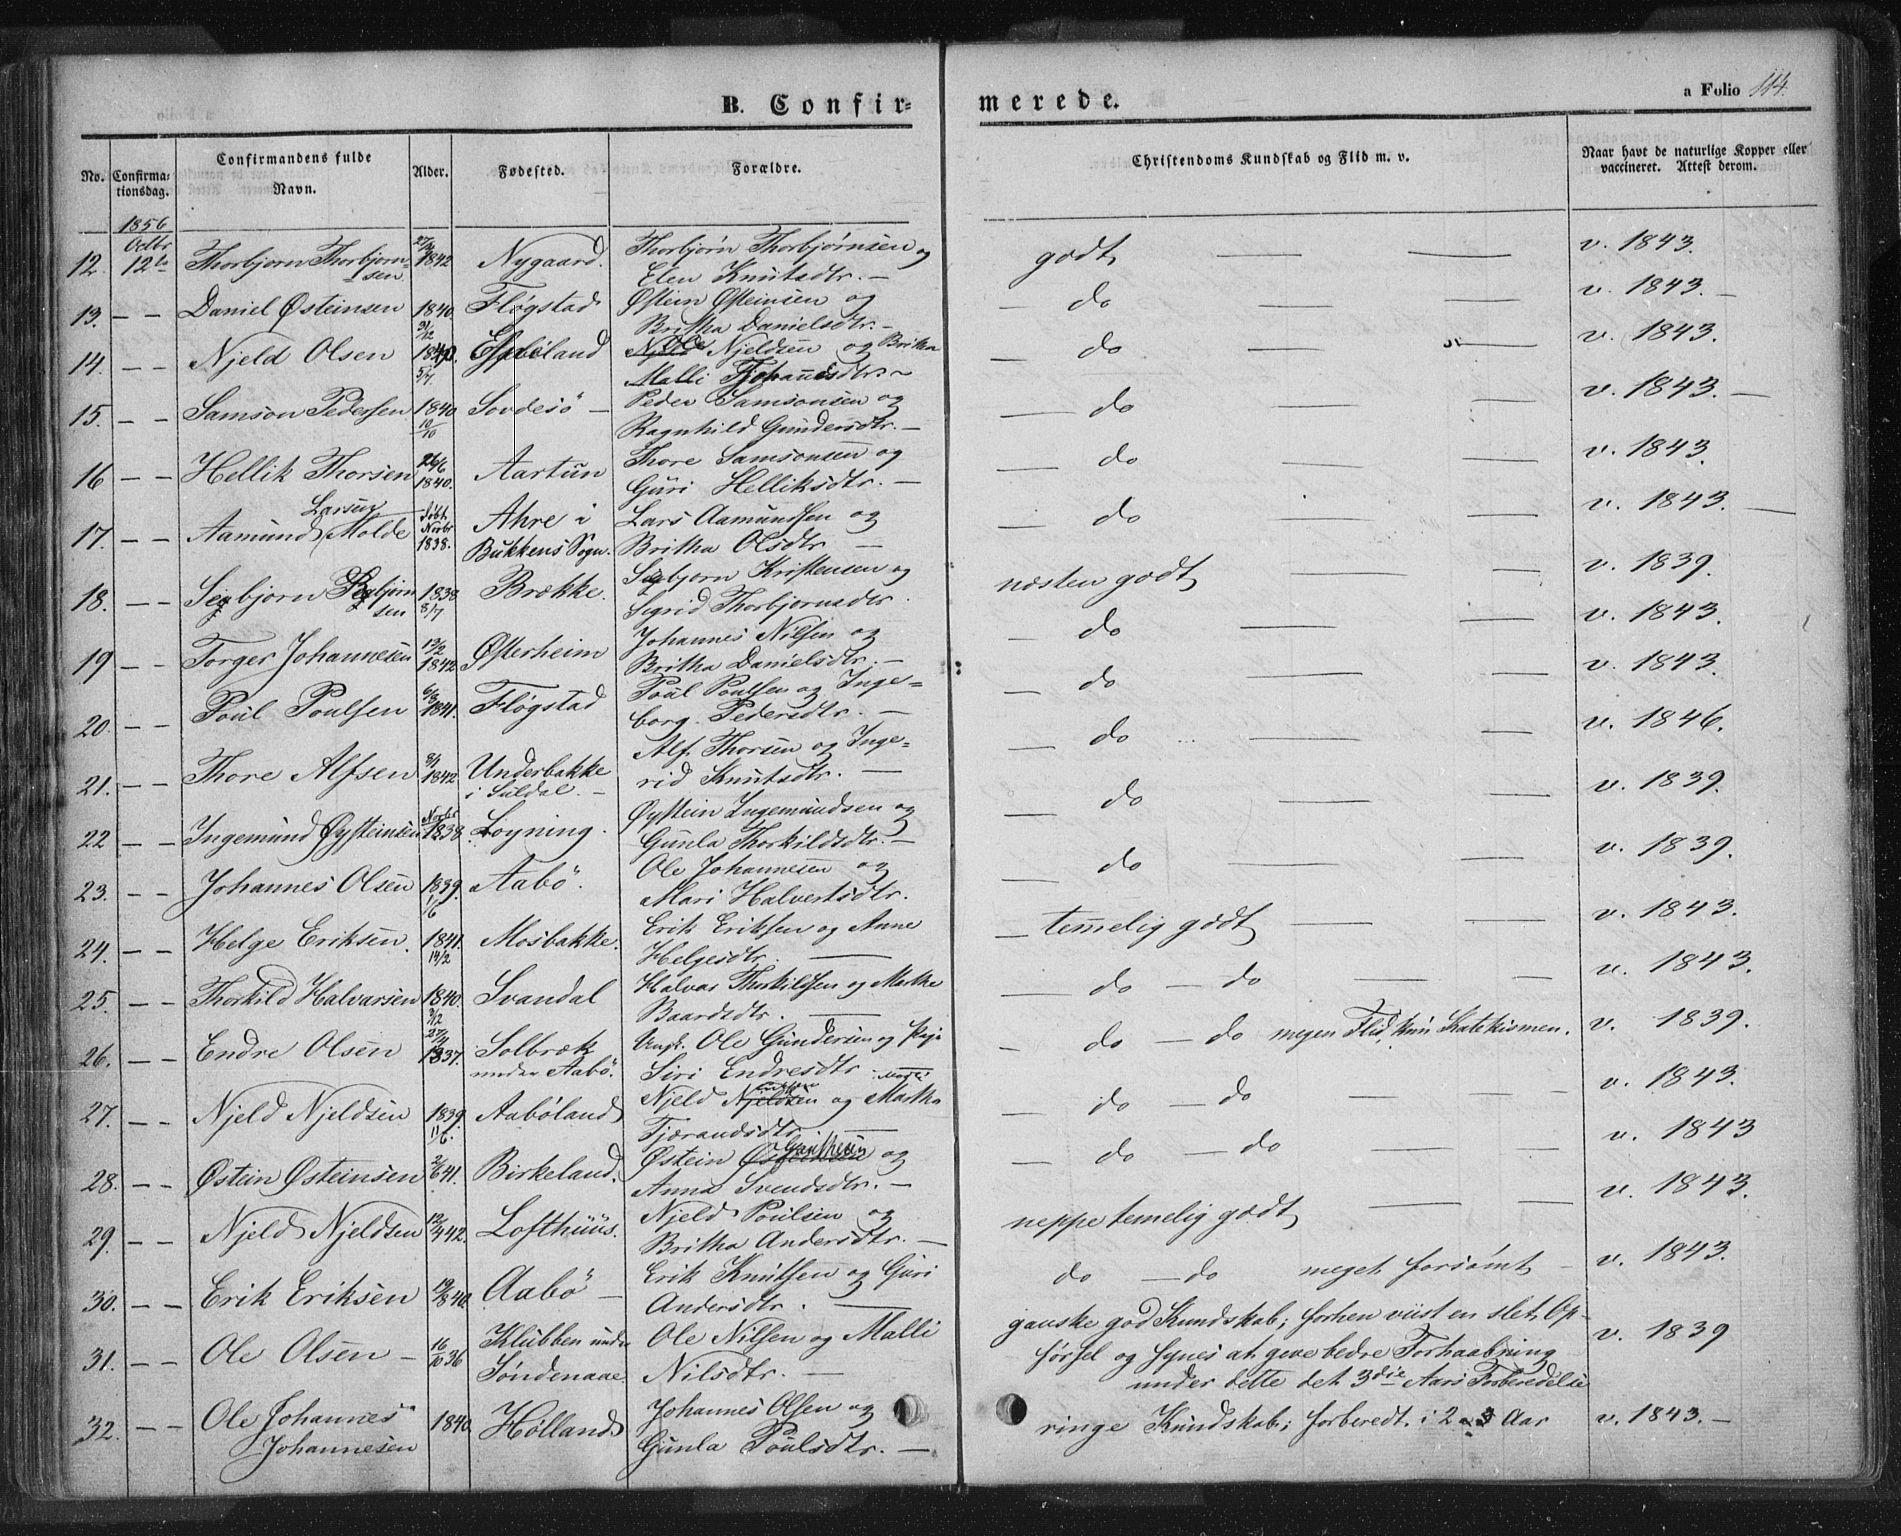 B. Confir-
merede.
a Folio 114.
No.
Confirma-
tionsdag.
Confirmandens fulde
Navn.
Alder.
Fødested.
Forældre.
Christendoms Kundskab og Flid m. v.
Naar havt de naturlige Kopper eller
vaccineret. Attest derom.
1856
Octbr
12. 12te Thorbjørn Thorbjørn- 1842 Nygaard. Thorbjørn Thorbjørnsen og godt — — v. 1843.
sen. Elen Knutsdtr. —
13. — — Daniel Østeinsen 1840. Fløgstad Østein Østeinsen og — do — — v. 1843. —
31/12 Britha Danielsdtr. —
14. — — Njeld Olsen Ole Njeldsen og Britha — do — v. 1843.
5/7 Malli Johannesdtr. —
15. — — Samson Pedersen 1840 Sovdesö — Peder Samsonsen og — do — — v. 1843. —
10/10 Ragnhild Gundersdtr. —
16 — — Hellik Thorsen 26/6 1840. Aartun Thore Samsonsen og — do — — v. 1843.
Guri Helliksdtr. —
Larsen
17. — — Aamund Molde døbt Novbr 1838. Ahre i Lars Aamundsen og — do — — v. 1843. —
Bukkens Sogn. Britha Olsdtr —
18. — — 1838 Brække. Kristensen og næsten godt — — v. 1839.
sen 8/7 Sigrid Thorbjørnsdtr.
19 — — Torger Johannesen 13/2 1842 Østerheim Johannes Nilsen og — do — — v. 1843.
Britha Danielsdtr. —
20. — — Poul Poulsen 6/3 1841. Fløgstad Poul Poulsen og Inge- — do — — v. 1843.
borg Pedersdtr. —
21. — — Thore Alfsen 1842. Underbakke Alf Thorsen og Inge- — do — — v. 1846.
i Suldal. — rid Knutsdtr. —
22 — — Ingemund Øysteinsen Novbr 1838 Løyning. Øystein Ingemundsen og — do — — v. 1839.
Gunla Thorkildsdtr. —
23. — — Johannes Olsen 1839. Aabö. Ole Johannesen og — do — — v. 1839.
11/6 Mari Halvorsdtr.
24. — — Helge Eriksen. 1841. Mosbakke. Erik Eriksen og Anne — temmelig godt — — v. 1843.
14/2 Helgesdtr. —
25. — — Thorkild Halvarsen 1840. Svandal Halvar Thorkilsen og Martha — do — do — — v. 1843.
Baardsdtr. —
26. — — Endre Olsen 27/7 1837. Solbræk Ungk. Ole Gundersen og Pige — do — do megen Flid, kun Katekismen. v. 1839.
under Aabö. Siri Endresdtr
27. — — Njeld Njeldsen 1839. Aabøland Njeld og Martha — do — do v. 1843.
11/6. Tjærandsdtr —
28. — — Østein Østeinsen 41. Birkeland. Østein og — do — do v. 1843
Anna Svendsdtr. —
29. — — Njeld Njeldsen 42. Lofthuus. Njeld Poulsen og neppe temelig godt — — v. 1843.
Britha Andersdtr. —
30. — — Erik Eriksen 40. Aabö — Erik Knutsen og Guri do — do meget forsømt — v. 1843.
Andersdtr. —
31. — — Ole Olsen — 16/10 36 Klubben under Ole Nilsen og Malli ganske god Kundskab; forhen viist en slet Op- v. 1839
Søndenaae. Nilsdtr. — førsel og synes at give bedre Forhaabning
under dette det 3die Aars Forberedelse
32. — — Ole Johannes 1840. Hølland Johannes Olsen og ringe Kundskab; forberedt i 2 a 3 Aar v. 1843. —
Johannesen Gunla Poulsdtr. —